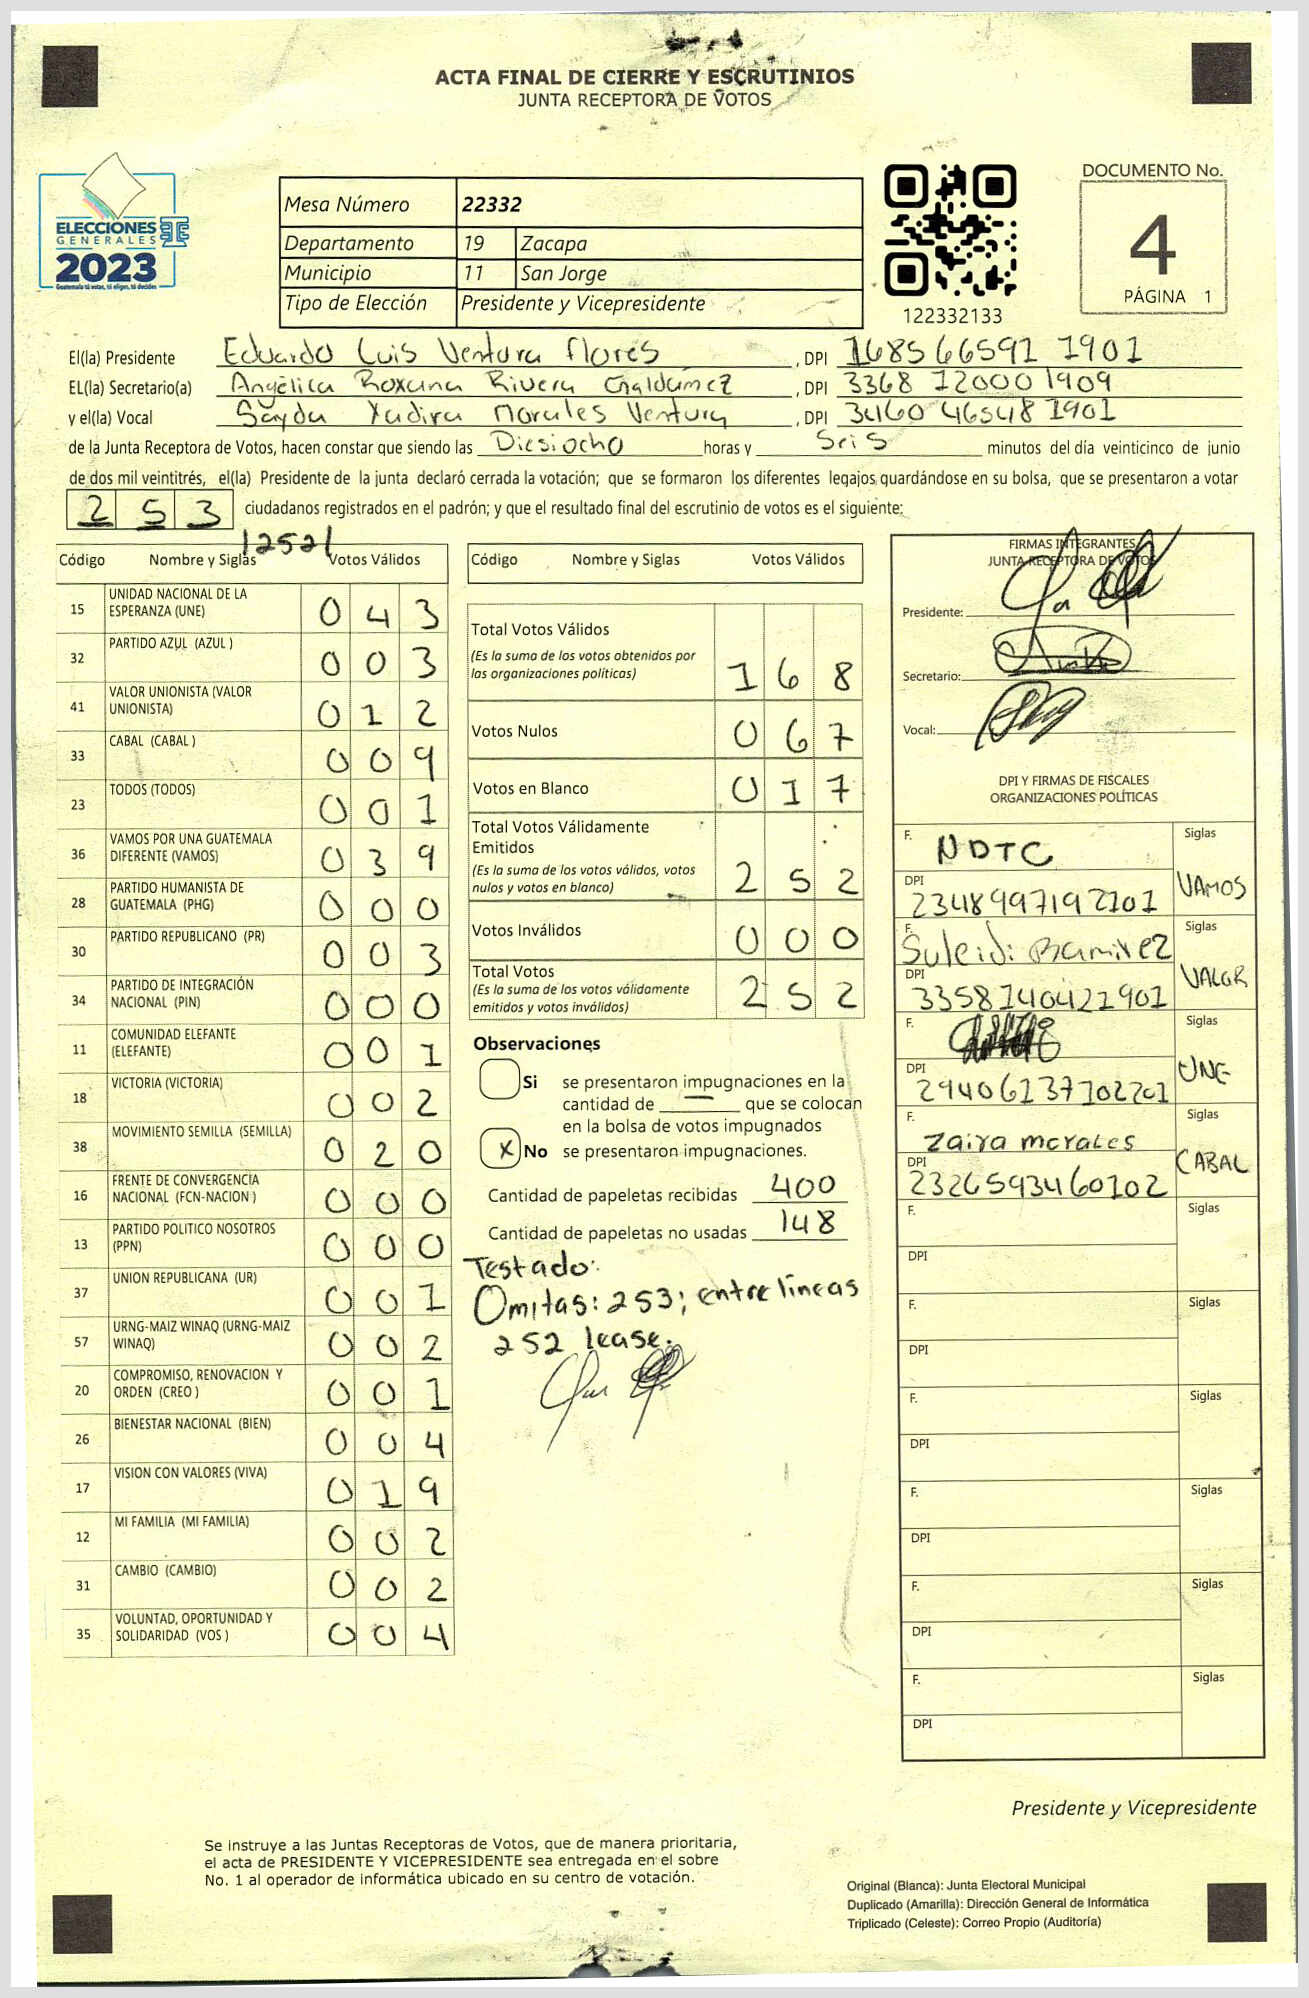 ACTA FINAL DE CIERRE Y ESCRUTINIOS
JUNTA RECEPTORA DE VOTOS
ELECCIONES
GENERALES
2023
Guatemala tú votas, tú eliges, tú decides
Mesa Número 22332
Departamento 19 Zacapa
Municipio 11 San Jorge
Tipo de Elección Presidente y Vicepresidente
122332133
DOCUMENTO No.
4
PÁGINA 1
El(la) Presidente Eduardo Luis Ventura Flores , DPI 168566591 1901
EL(la) Secretario(a) Angélica Roxana Rivera Galdamez , DPI 3368 12000 1909
y el(la) Vocal Sayda Yadira Morales Ventura , DPI 3460 46548 1901
de la Junta Receptora de Votos, hacen constar que siendo las Diesiocho horas y Seis minutos del día veinticinco de junio
de dos mil veintitrés, el(la) Presidente de la junta declaró cerrada la votación; que se formaron los diferentes legajos guardándose en su bolsa, que se presentaron a votar
253 ciudadanos registrados en el padrón; y que el resultado final del escrutinio de votos es el siguiente:
/252/
Código Nombre y Siglas Votos Válidos
15 UNIDAD NACIONAL DE LA ESPERANZA (UNE) 043
32 PARTIDO AZUL (AZUL ) 003
41 VALOR UNIONISTA (VALOR UNIONISTA) 012
33 CABAL (CABAL ) 009
23 TODOS (TODOS) 001
36 VAMOS POR UNA GUATEMALA DIFERENTE (VAMOS) 039
28 PARTIDO HUMANISTA DE GUATEMALA (PHG) 000
30 PARTIDO REPUBLICANO (PR) 003
34 PARTIDO DE INTEGRACIÓN NACIONAL (PIN) 000
11 COMUNIDAD ELEFANTE (ELEFANTE) 001
18 VICTORIA (VICTORIA) 002
38 MOVIMIENTO SEMILLA (SEMILLA) 020
16 FRENTE DE CONVERGENCIA NACIONAL (FCN-NACION ) 000
13 PARTIDO POLITICO NOSOTROS (PPN) 000
37 UNION REPUBLICANA (UR) 001
57 URNG-MAIZ WINAQ (URNG-MAIZ WINAQ) 002
20 COMPROMISO, RENOVACION Y ORDEN (CREO ) 001
26 BIENESTAR NACIONAL (BIEN) 004
17 VISION CON VALORES (VIVA) 019
12 MI FAMILIA (MI FAMILIA) 002
31 CAMBIO (CAMBIO) 002
35 VOLUNTAD, OPORTUNIDAD Y SOLIDARIDAD (VOS ) 004
Código Nombre y Siglas Votos Válidos
Total Votos Válidos
(Es la suma de los votos obtenidos por
las organizaciones políticas) 168
Votos Nulos 067
Votos en Blanco 017
Total Votos Válidamente
Emitidos
(Es la suma de los votos válidos, votos
nulos y votos en blanco) 252
Votos Inválidos 000
Total Votos
(Es la suma de los votos válidamente
emitidos y votos inválidos) 252
Observaciones
Si se presentaron impugnaciones en la
cantidad de — que se colocan
en la bolsa de votos impugnados
X No se presentaron impugnaciones.
Cantidad de papeletas recibidas 400
Cantidad de papeletas no usadas 148
Testado:
Omitas: 253; entre lineas
252 lease.
FIRMAS INTEGRANTES
JUNTA RECEPTORA DE VOTOS
Presidente:
Secretario:
Vocal:
DPI Y FIRMAS DE FISCALES
ORGANIZACIONES POLÍTICAS
F. NDTC Siglas
DPI 2348997192101 VAMOS
F. Suleidi Ramirez Siglas
DPI 3358140421901 VALOR
F. Siglas
DPI 29406137702201 UNE
F. Zaira morales Siglas
DPI 2326593460102 CABAL
F. Siglas
DPI
F. Siglas
DPI
F. Siglas
DPI
F. Siglas
DPI
F. Siglas
DPI
F. Siglas
DPI
Presidente y Vicepresidente
Se instruye a las Juntas Receptoras de Votos, que de manera prioritaria,
el acta de PRESIDENTE Y VICEPRESIDENTE sea entregada en el sobre
No. 1 al operador de informática ubicado en su centro de votación.
Original (Blanca): Junta Electoral Municipal
Duplicado (Amarilla): Dirección General de Informática
Triplicado (Celeste): Correo Propio (Auditoría)